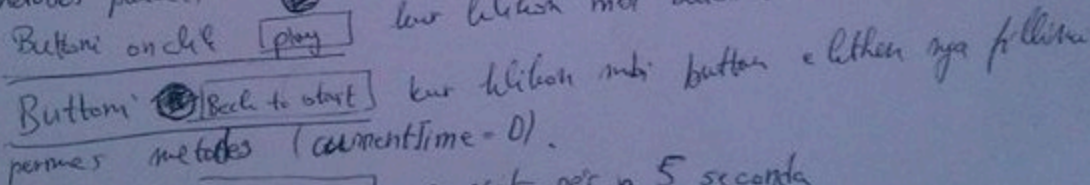 Buttoni onclik play kur klikon
Buttoni Back to start kur klikon mbi button e kthen nga fillimi
permes metodes (currentTime = 0).
5 seconda